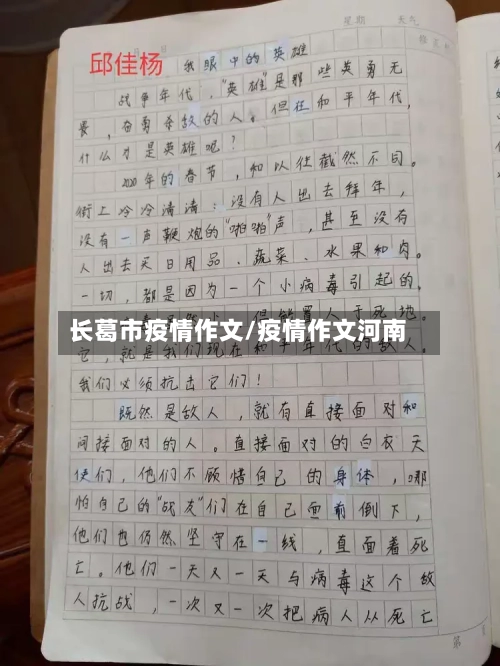 星期
邱佳杨 我眼中的英雄
战争年代，“英雄”是那些英勇无
畏，奋勇杀敌的人。但在和平年代，
什么才是英雄呢？
2020年的春节，和以往截然不同。
街上冷冷清清：没有人出去拜年，
没有一声鞭炮的“啪啪”声，甚至没有
人出去买日用品、蔬菜、水果和肉。
一切，都是因为一个小病毒引起的。
长葛市疫情作文/疫情作文河南
它，就是我们现在
我们必须抗击它们！
既然是敌人，就有直接面对和
间接面对的人。直接面对的白衣天
使们，他们不顾惜自己的身体，哪
怕自己的“战友”们在自己面前倒下，
他们也仍然坚守在一线，直面着死
亡。他们一天又一天与病毒这个敌
人抗战，一次又一次把病人从死亡
第